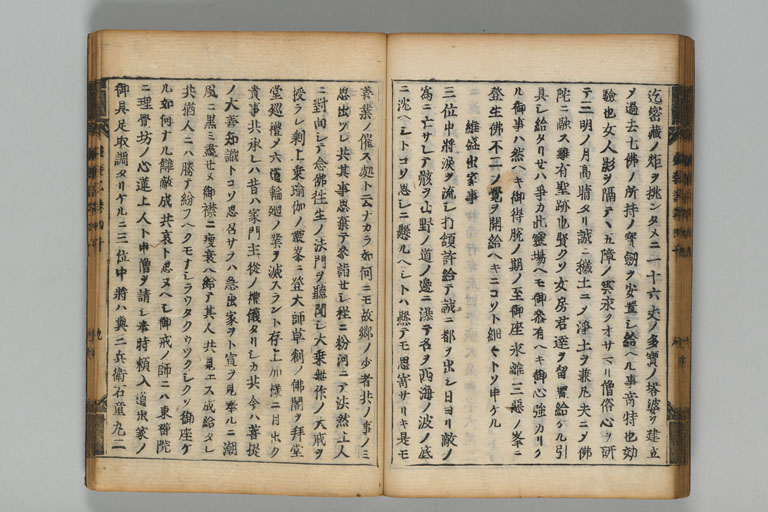 迄密蔵ノ炬ヲ挑ンタメニ一十六丈ノ多寶ノ塔婆ヲ建立
メ過去七佛ノ所持ノ寶劔ヲ安置シ給ヘル事奇特也効
驗也女人影ヲ隔テヽ五障ノ雲永クオサマリ僧俗心ヲ研
テ三明ノ月高晴タリ誠ニ穢土ニメ淨土ヲ兼凡夫ニメ佛
陀ニ融ス難有聖跡也賢クソ女房君達ヲ留置給ケル引
具シ給タリセハ爭カ此靈場ヘモ御參有ヘキ御心強カリク
ル御事ハ然ヘキ御得脱ノ期ノ至御座永離三惡ノ峯ニ
登生佛不二ノ覺ヲ開給ヘキニコソト細々トソ申ケル
維盛出家事
三位中將涙ヲ流シ打頷許給テ誠ニ都ヲ出シ日ヨリ敵ノ
爲ニ亡サレテ骸ヲ山野ノ道ノ邊ニ漂テ名ヲ西海ノ波ノ底
ニ沈ヘシトコソ思シニ懸ルヘシトハ懸テモ思寄サリキ是モ
善業ノ催ス処ト云ナカラ如何ニモ故郷ノ少者共ノ事ノミ
思出ツレ共其事思棄テ參詣セシ程ニ粉河ニテ法然上人
ニ對面シテ念佛往生ノ法門ヲ聽聞シ大乗無作ノ大戒ヲ
授ラレ剩上乗瑜伽ノ嶺峯ニ登大師草創ノ佛閣ヲ拜堂
堂巡禮メ六道輪廻ノ業ヲ滅スラント存上加樣ニ月出ク
貴事共承レハ昔ハ家門主從ノ禮儀タリシカ共今ハ菩提
ノ大善知識トコソ思召サラハ急出家ヲト宣ヲ見奉ルニ潮
風ニ黒ミ盡セヌ御襟ニ痩衰ヘ給テ其人共見エス成給タレ
共猶人ニハ勝テ紛フヘクモナシラウタクウツクシクソ御座ケ
ル如何ナル讎敵成共哀ト思ヌヘシ御戒ノ師ニハ東禪院
ニ理覺坊ノ心蓮上人ト申僧ヲ請シ奉特頼入道出家ノ
御具足取調タリケルニ三位中將ハ與三兵衛石童丸二